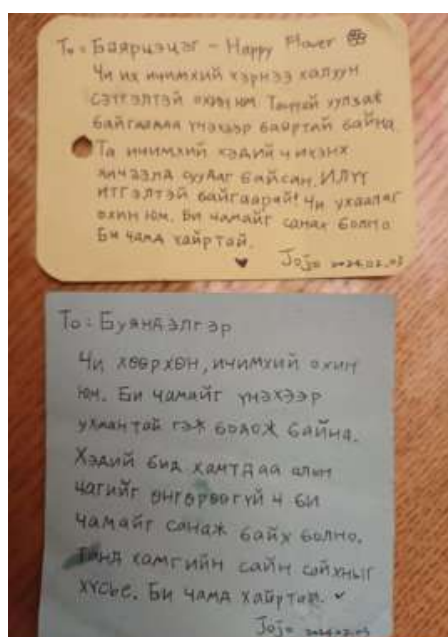 To: Баярцэцэг - Happy Flower
Чи их ичимхий хэрнээ халуун
сэтгэлтэй охин юм. Тантай хувьд
байгаадаа үнэхээр баяртай байна
Та ичимхий хэдий ч ихэнх
хичээлд сууааг байсан. Илүү
итгэлтэй байгаарай! Чи ухаалаг
охин юм. Би чамайг санах болно
Би чамд хайртай.
Jojo 2024.02.03
To: Буяндэлгэр
Чи хөөрхөн, ичимхий охин
юм. Би чамайг үнэхээр
ухаантай гэж бодож байна.
Хэдий бид хамтдаа олон
цагийг өнгөрөөгүй ч би
чамайг санаж байх болно.
Танд хамгийн сайн сайхныг
хүсье. Би чамд хайртай.
Jojo 2024.02.03